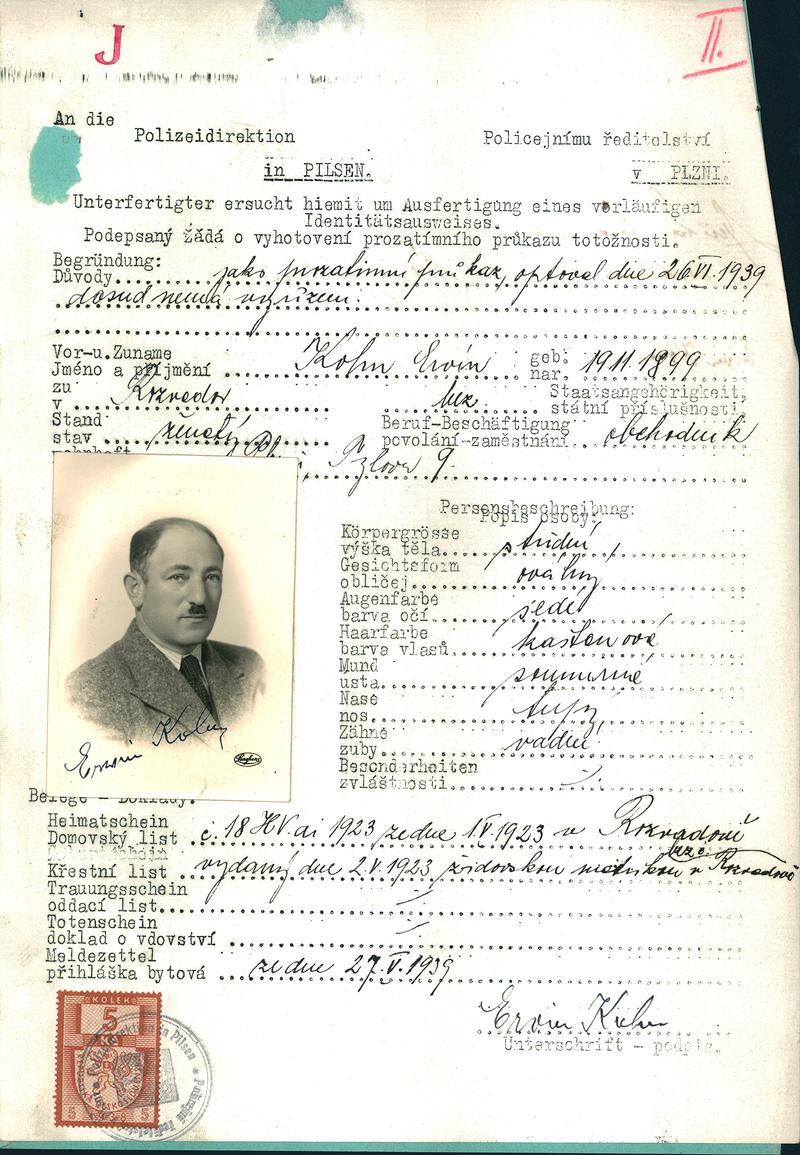 J
II.
An die
Polizeidirektion
Policejnímu ředitelství
in PILSEN.
v PLZNI.
Unterfertigter ersucht hiemit um Ausfertigung eines vorläufigen
Identitätsausweises.
Podepsaný žádá o vyhotovení prozatímního průkazu totožnosti.
Begründung:
Důvody jako prozatimní průkaz, optoval dne 26 VI. 1939
dosud nemá vyřízení.
Vor-u. Zuname
Jméno a příjmění Kohn Ervín geb. nar. 19 11. 1899
zu
v Rozvadov bez Staatsangehörigkeit,
státní příslušnosti
Stand
stav ženatý Beruf-Beschäftigung
povolání-zaměstnání obchodník
9.
Personsbeschreibung:
Popis osoby:
Körpergrösse
výška těla střední
Gesichtsform
obličej oválný
Augenfarbe
barva očí šedé
Haarfarbe
barva vlasů kaštanová
Mund
ústa souměrné
Nase
nos tupý
Zähne
zuby vadné
Besonderheiten
zvláštnosti
Erwin Kohn
Belege - Doklady:
Heimatschein
Domovský list č. 18 ai 1923 ze dne 1.V.1923 v Rozvadově
Křestní list vydaný dne 2.V.1923 židovskou matrikou v Rozvadově
Trauungsschein
oddací list
Totenschein
doklad o vdovství
Meldezettel
přihláška bytová ze dne 27.V.1939
KOLEK
5
5 5
Ervin Kohn
Unterschrift - podpis.